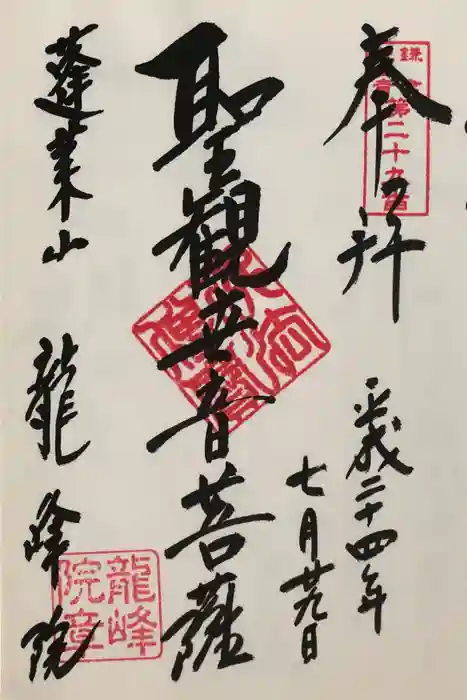 奉拝
鎌
第二十九番
平成二十四年
七月廿九日
聖觀世音菩薩
蓬莱山
龍峰院
龍峰
院章